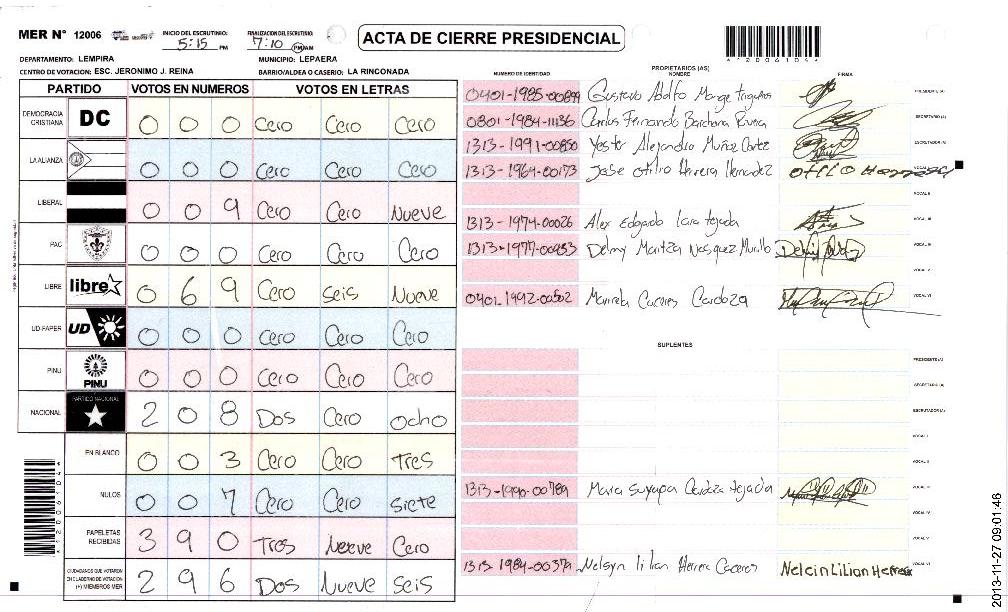 MER N° 12006
INICIO DEL ESCRUTINIO: 5:15 PM
FINALIZACION DEL ESCRUTINIO: 7:10 PM AM
ACTA DE CIERRE PRESIDENCIAL
*12006104*
DEPARTAMENTO: LEMPIRA
MUNICIPIO: LEPAERA
CENTRO DE VOTACION: ESC. JERONIMO J. REINA
BARRIO/ALDEA O CASERIO: LA RINCONADA
PARTIDO VOTOS EN NUMEROS VOTOS EN LETRAS
DEMOCRACIA CRISTIANA DC 0 0 0 Cero Cero Cero
LA ALIANZA 0 0 0 Cero Cero Cero
LIBERAL 0 0 9 Cero Cero Nueve
PAC 0 0 0 Cero Cero Cero
LIBRE libre 0 6 9 Cero Seis Nueve
UD-FAPER UD 0 0 0 Cero Cero Cero
PINU PINU 0 0 0 Cero Cero Cero
NACIONAL PARTIDO NACIONAL 2 0 8 Dos Cero ocho
EN BLANCO 0 0 3 Cero Cero Tres
NULOS 0 0 7 Cero Cero Siete
PAPELETAS RECIBIDAS 3 9 0 Tres Nueve Cero
CIUDADANOS QUE VOTARON EN CUADERNO DE VOTACION (+) MIEMBROS MER 2 9 6 Dos Nueve Seis
*12006104*
PROPIETARIOS (AS)
NUMERO DE IDENTIDAD NOMBRE FIRMA
0401-1985-00899 Gustavo Adolfo PRESIDENTE (A)
0801-1984-11136 Carlos Fernando SECRETARIO (A)
1313-1991-00850 Yester Alejandro Muñoz Cortez ESCRUTADOR (A)
1313-1964-00173 Jose Otilio Herrera Hernandez VOCAL I
VOCAL II
1313-1974-00026 Alex Edgardo Lara tejada VOCAL III
1313-1977-00953 Delmy Maritza Vasquez Murillo VOCAL IV
VOCAL V
0401-1992-00502 Mariela Caceres Cardoza VOCAL VI
SUPLENTES
PRESIDENTE (A)
SECRETARIO (A)
ESCRUTADOR (A)
VOCAL I
VOCAL II
1313-1990-00789 Maria Suyapa Cardoza tejada VOCAL III
VOCAL IV
VOCAL V
1313-1984-00379 Nelsyn lilian Herrera Caceres Nelcin Lilian Herrera VOCAL VI
2013-11-27 09:01:46